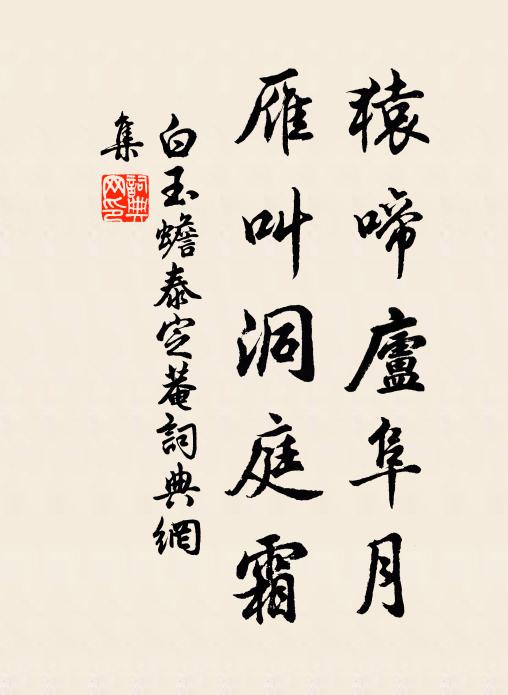 猿啼廬阜月
雁叫洞庭霜
白玉蟾泰定菴詞典網
集
詞典網印